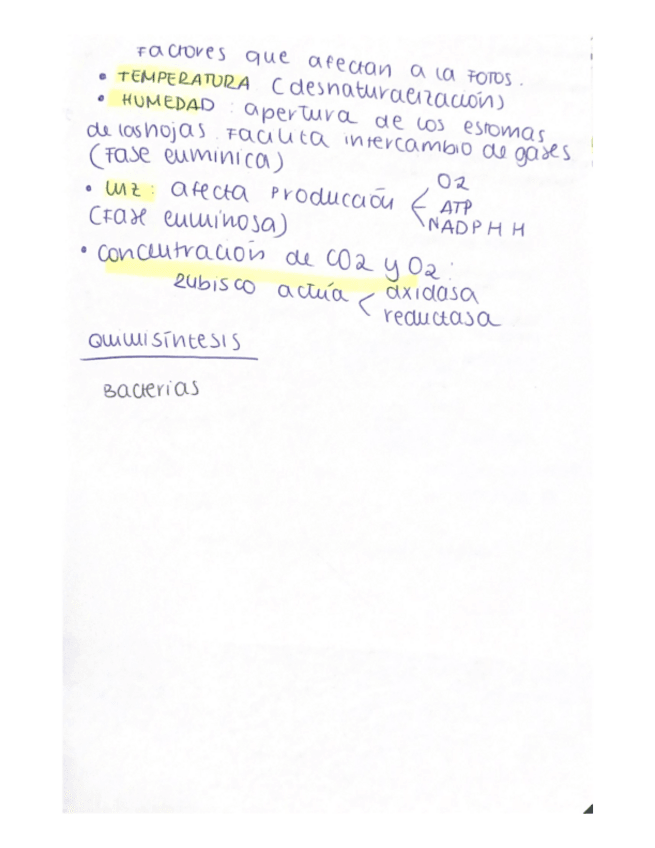 Factores que afectan a la FOTOS.
• TEMPERATURA (desnaturalización)
• HUMEDAD : apertura de los estomas
de las hojas. Facilita intercambio de gases
(Fase lumínica)
• LUZ : afecta producción < O2
ATP
NADPH H
(Fase luminosa)
• Concentración de CO2 y O2 :
Rubisco actúa < oxidasa
reductasa
Quimisíntesis
Bacterias